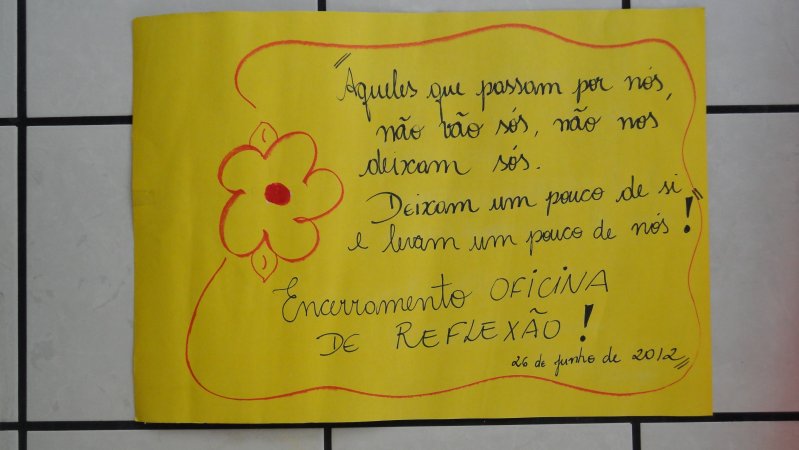 "Aqueles que passam por nós,
não vão sós, não nos
deixam sós.
Deixam um pouco de si
e levam um pouco de nós!"
Encerramento OFICINA
DE REFLEXÃO!
26 de junho de 2012"